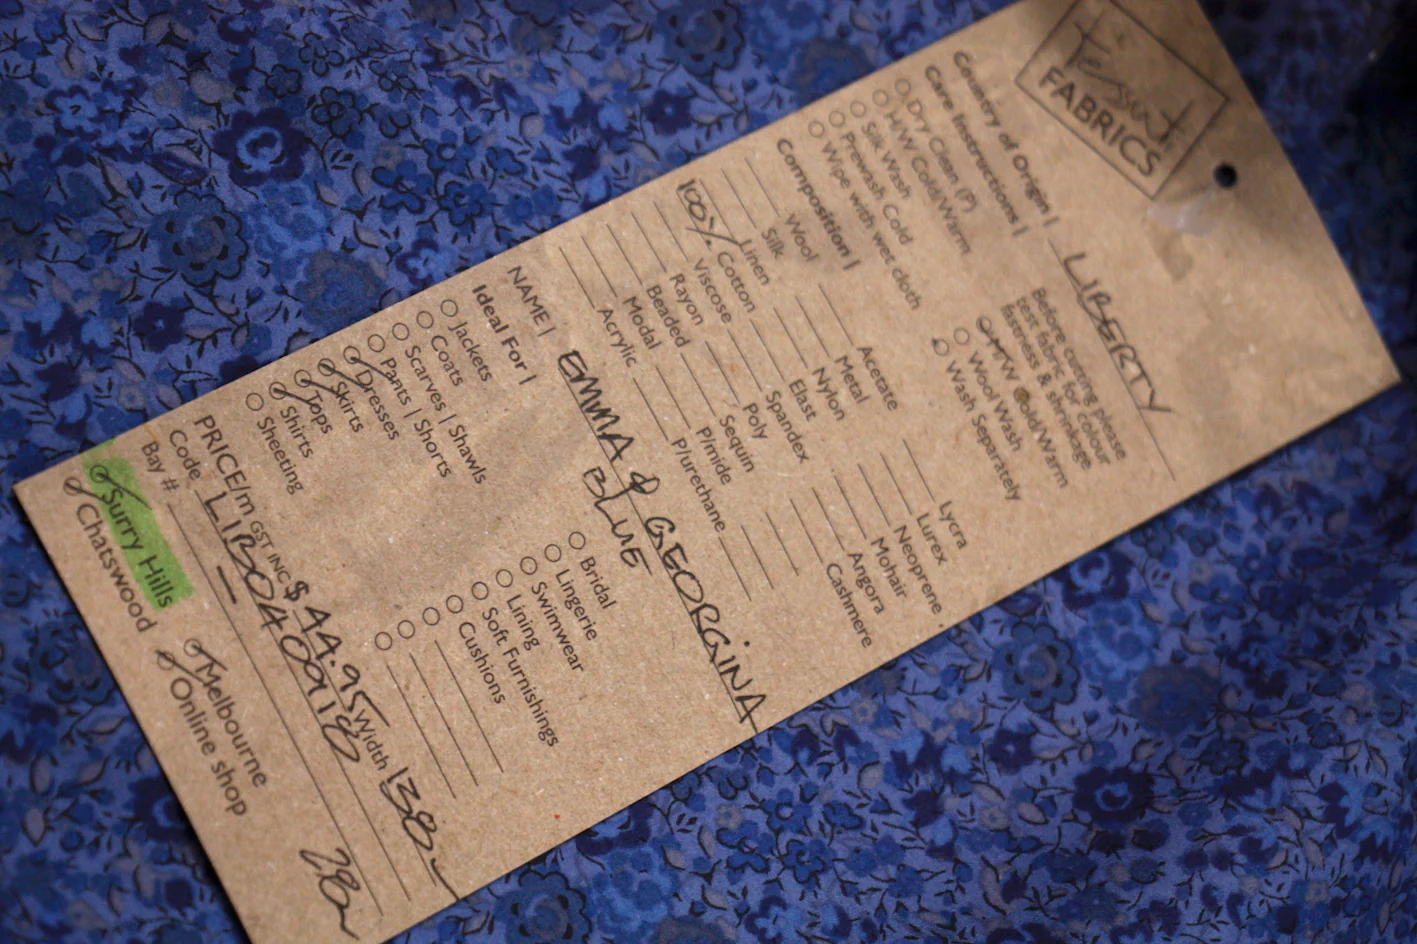 Tessuti
FABRICS
Country of Origin | LIBERTY
Care Instructions |
Before cutting please
test fabric for colour
fastness & shrinkage
Dry Clean (P)
H/W Cold/Warm
Silk Wash
Prewash Cold
Wipe with wet cloth
M/W Cold/Warm
Wool Wash
Wash Separately
Composition |
Wool
Silk
Linen
100% Cotton
Viscose
Rayon
Beaded
Modal
Acrylic
Acetate
Metal
Nylon
Elast
Spandex
Poly
Sequin
P/mide
P/urethane
Lycra
Lurex
Neoprene
Mohair
Angora
Cashmere
NAME | EMMA & GEORGINA
BLUE
Ideal For |
Jackets
Coats
Scarves | Shawls
Pants | Shorts
Dresses
Skirts
Tops
Shirts
Sheeting
Bridal
Lingerie
Swimwear
Lining
Soft Furnishings
Cushions
PRICE/m GST INC $44.95 Width 138
Code LIB0400918
Bay #
Surry Hills
Chatswood
Melbourne
Online shop